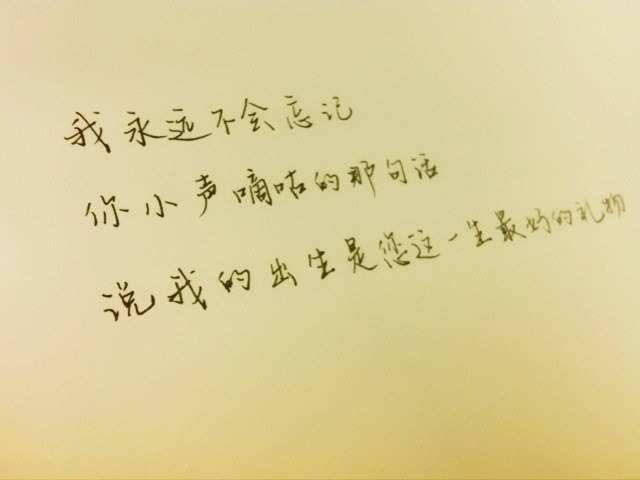 我永远不会忘记
你小声嘀咕的那句话
说我的出生是您这一生最好的礼物